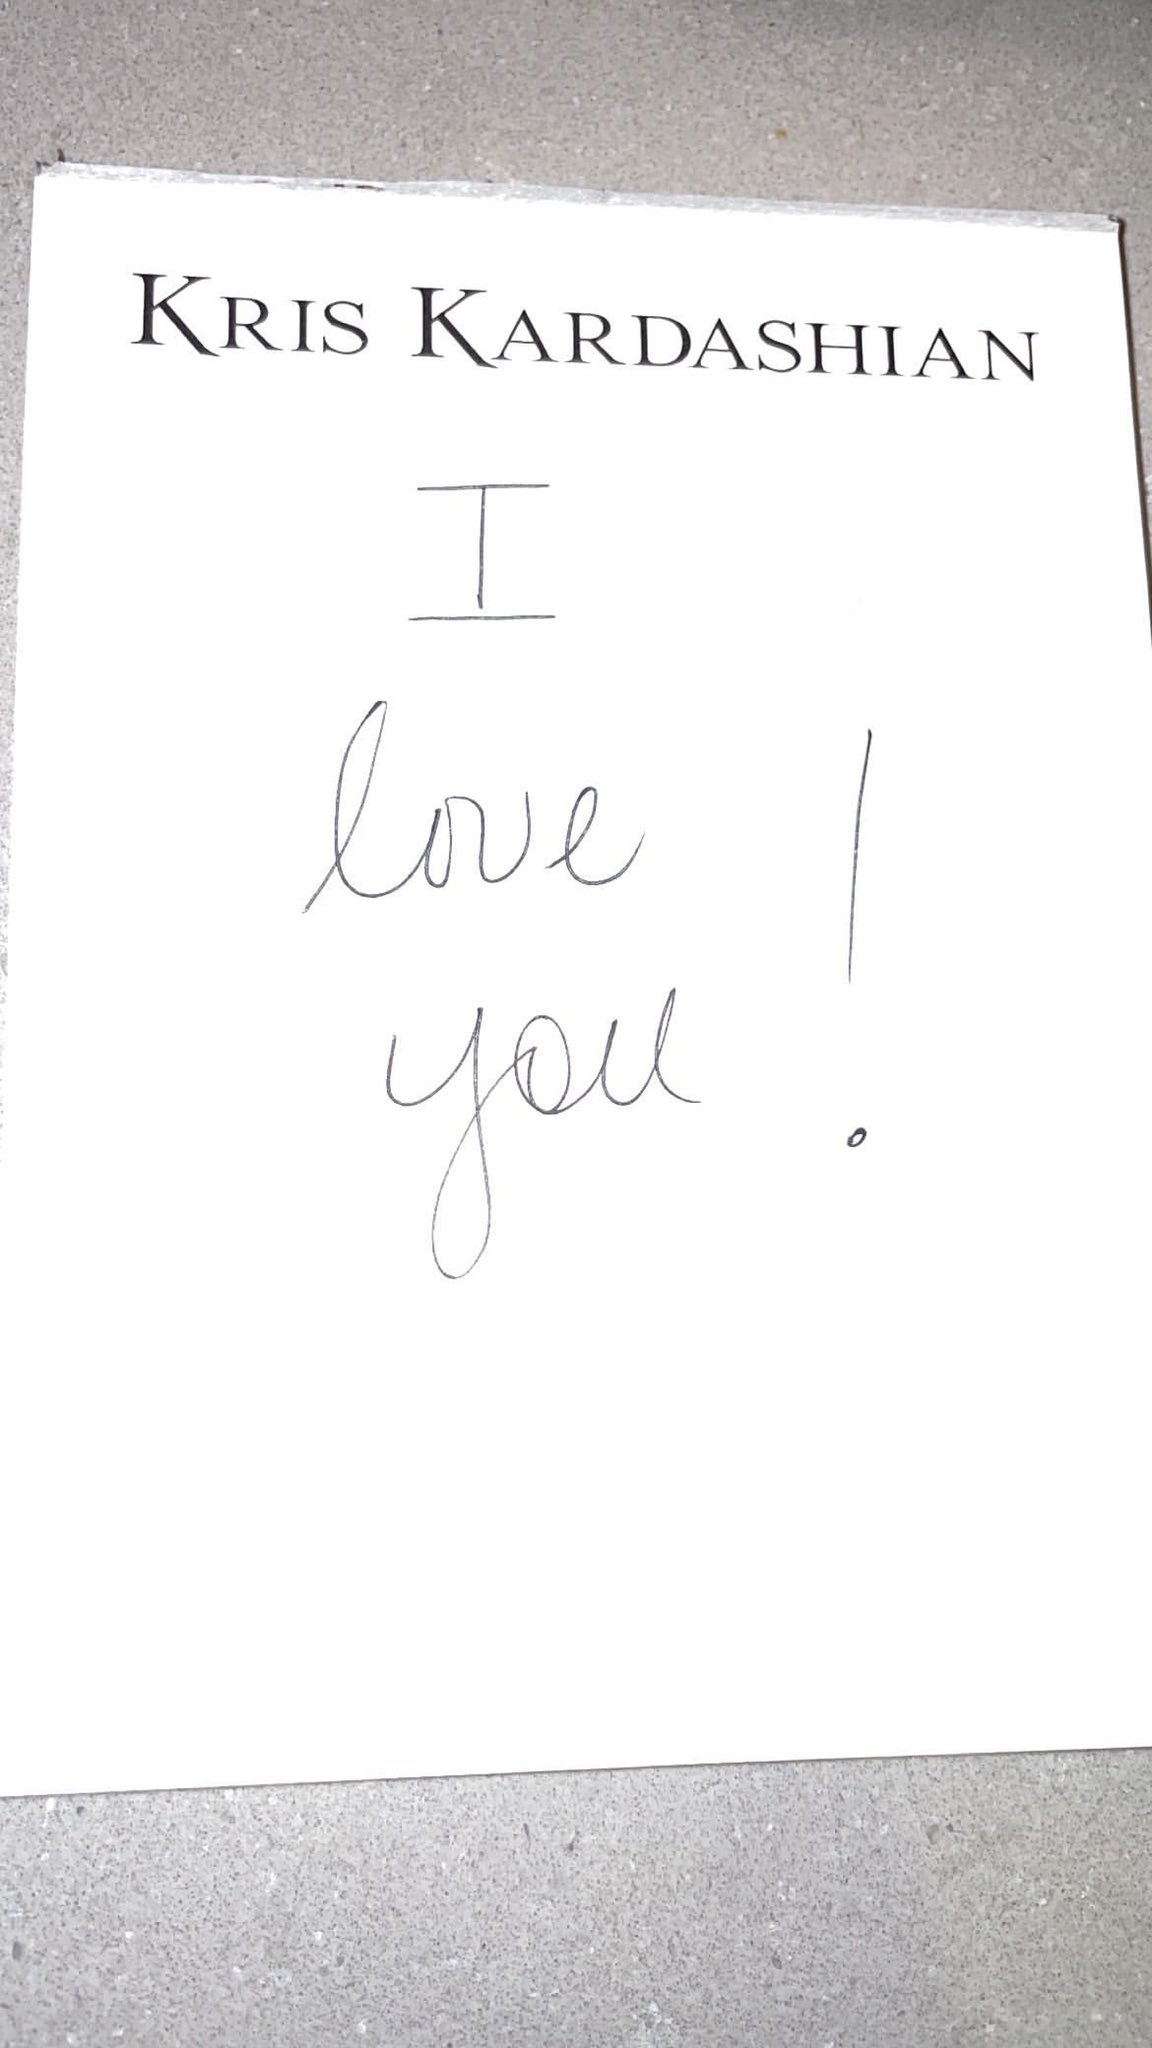 KRIS KARDASHIAN
I
love
you!